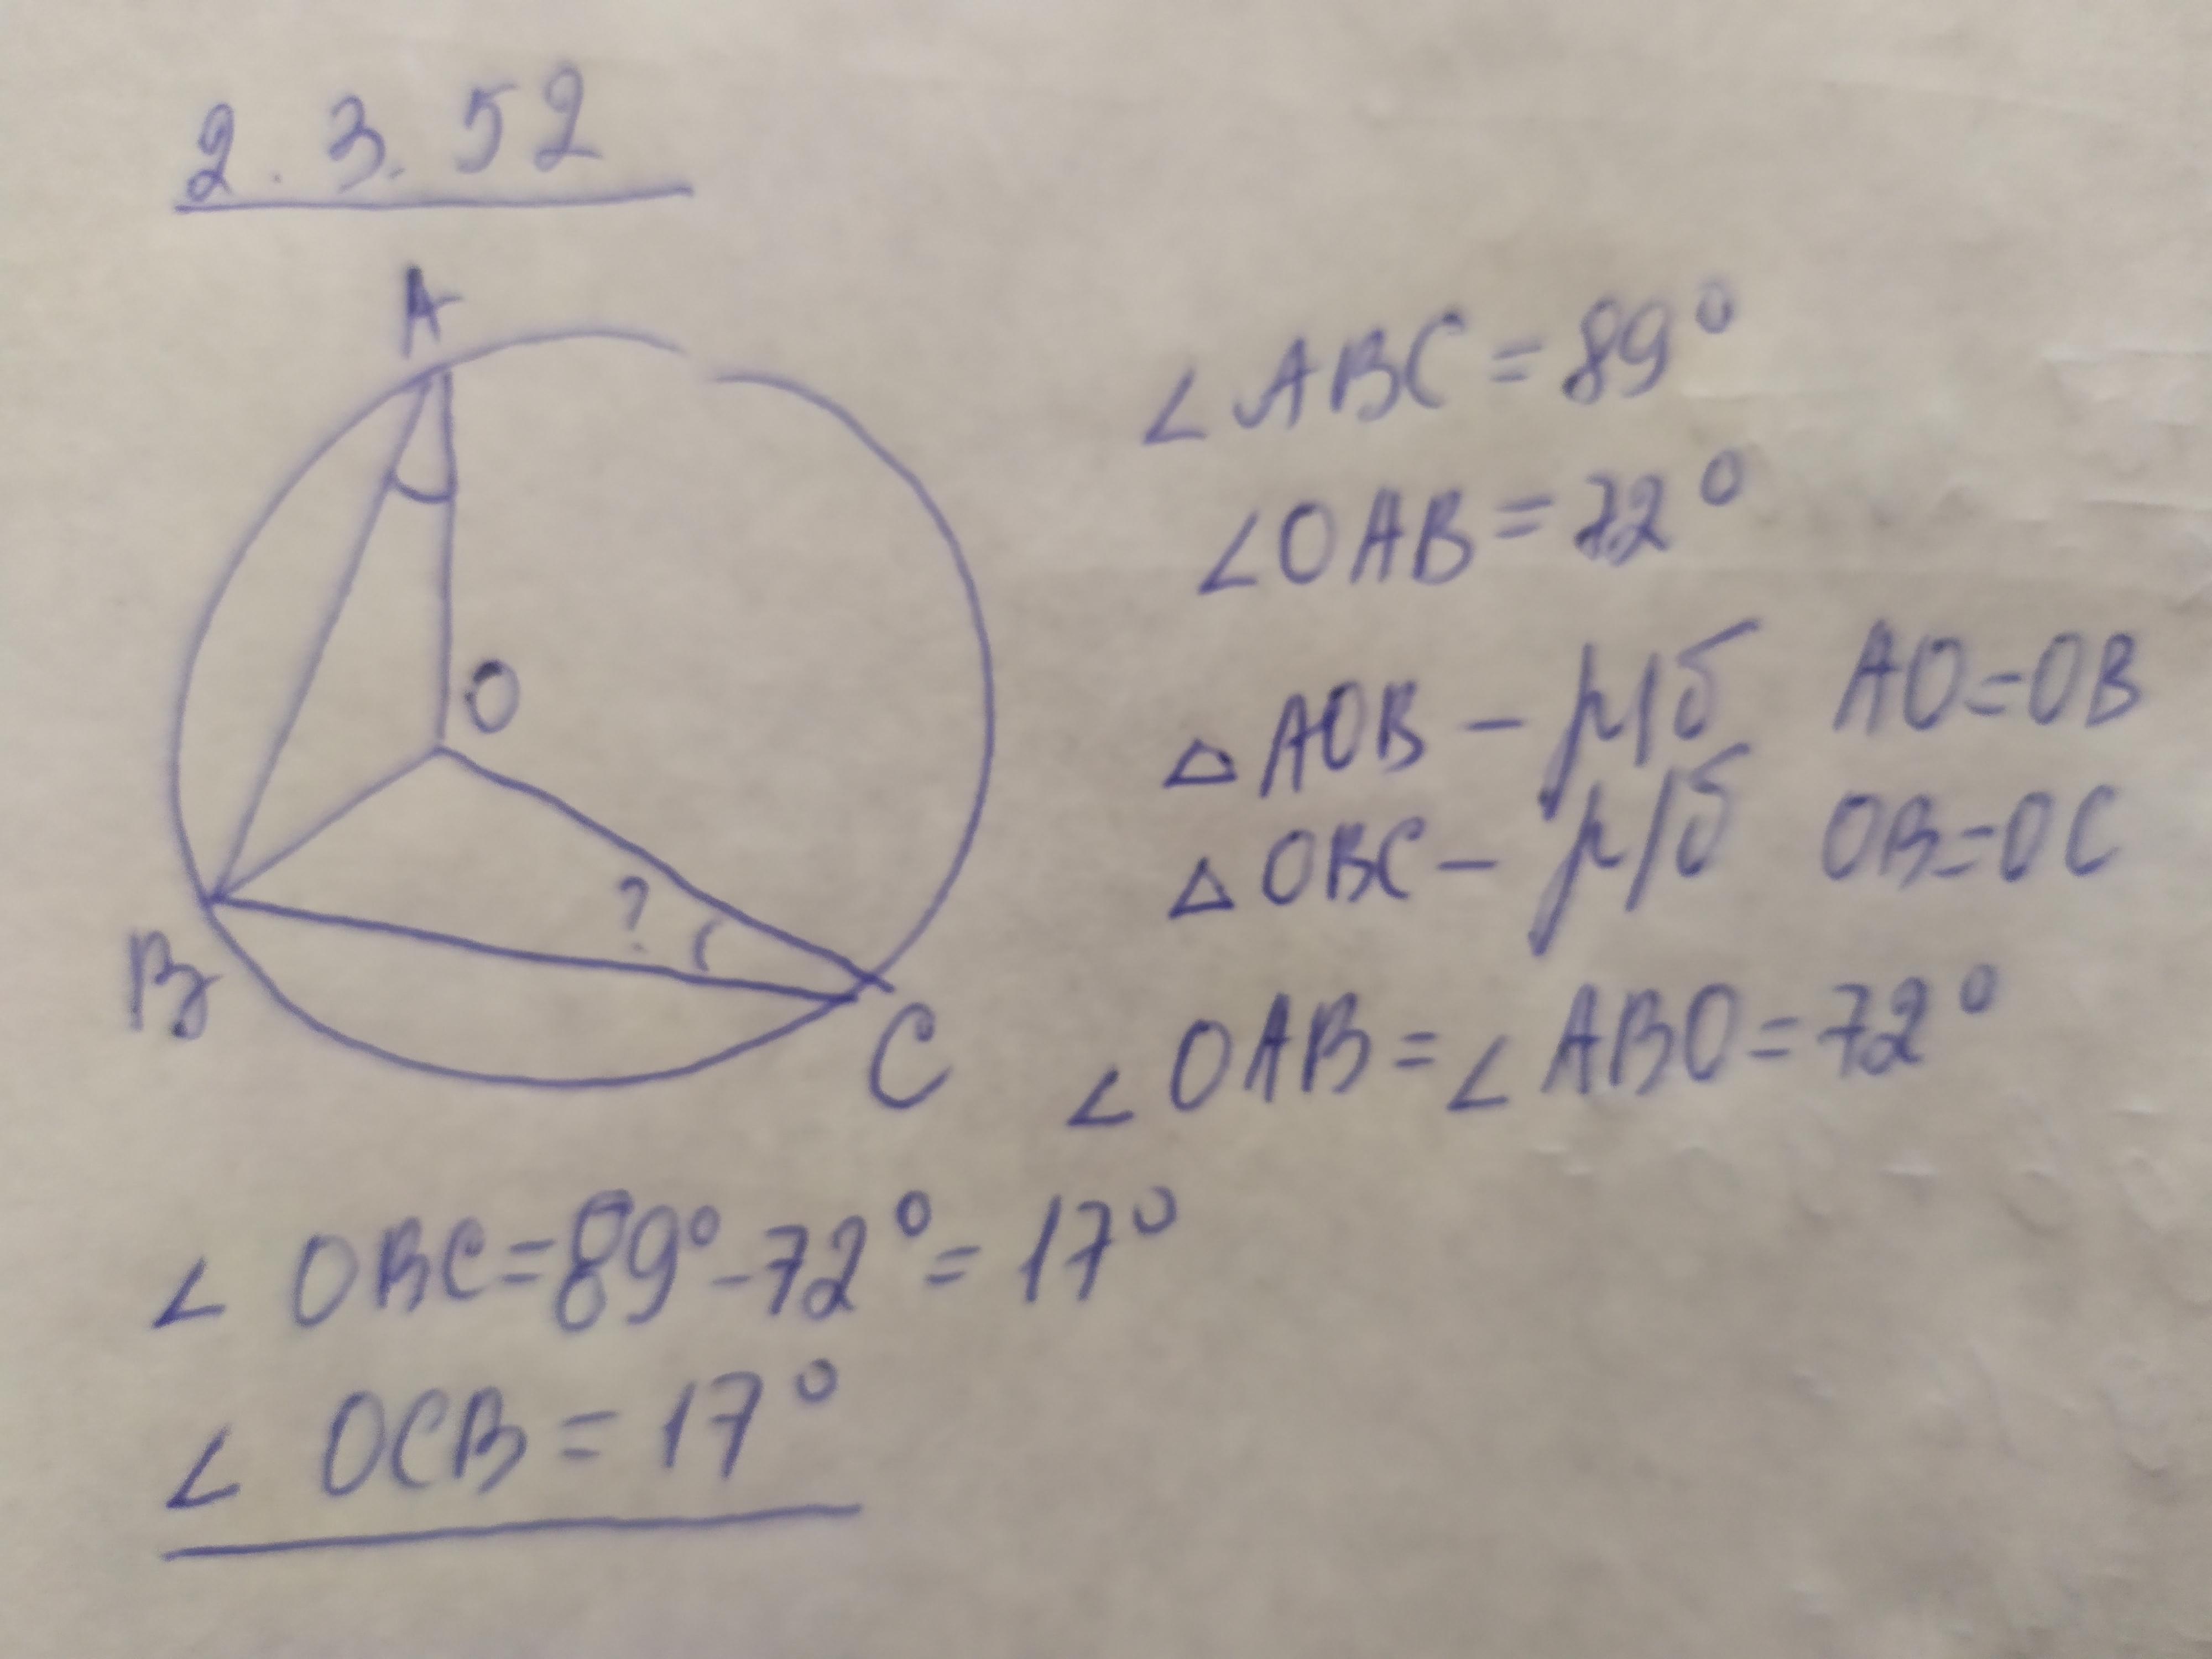 2.3.52
A
O
?
B
C
∠ABC=89°
∠OAB=72°
△AOB – р/б AO=OB
△OBC – р/б OB=OC
∠OAB=∠ABO=72°
∠OBC=89°-72°=17°
∠OCB=17°